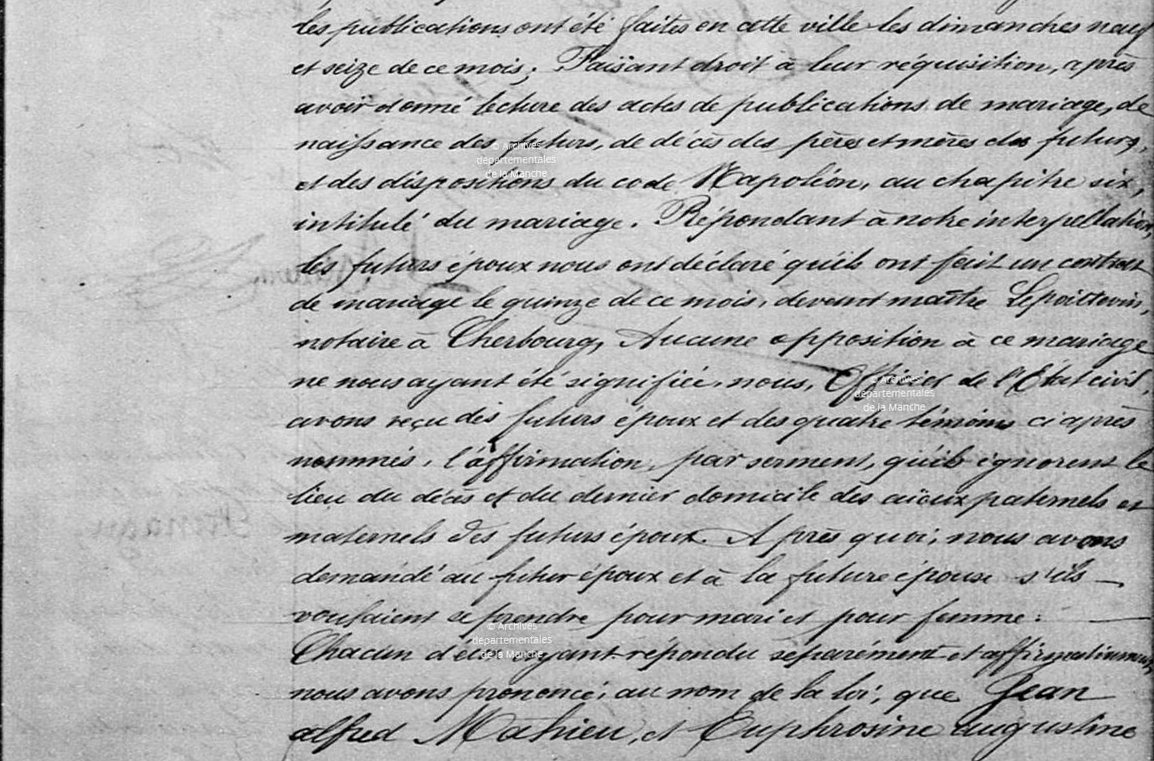 les publications ont été faites en cette ville les dimanches neuf
et seize de ce mois; Faisant droit à leur réquisition, après
avoir donné lecture des actes de publications de mariage, de
naissance des futurs, de décès des pères et mères des futurs,
et des dispositions du code Napoléon, au chapitre six,
intitulé du mariage. Répondant à notre interpellation,
les futurs époux nous ont déclaré qu'ils ont fait un contrat
de mariage le quinze de ce mois, devant maître Lepoittevin,
notaire à Cherbourg, Aucune opposition à ce mariage
ne nous ayant été signifiée, nous, Officier de l'État civil,
avons reçu des futurs époux et des quatre témoins ci après
nommés, l'affirmation, par serment, qu'ils ignorent le
lieu du décès et du dernier domicile des aïeux paternels et
maternels des futurs époux. Après quoi, nous avons
demandé au futur époux et à la future épouse s'ils
voulaient se prendre pour mari et pour femme:
Chacun d'eux ayant répondu séparément et affirmativement,
nous avons prononcé, au nom de la loi, que Jean
alfred Mahieu, et Euphrosine augustine
© Archives
départementales
de la Manche
© Archives
départementales
de la Manche
© Archives
départementales
de la Manche